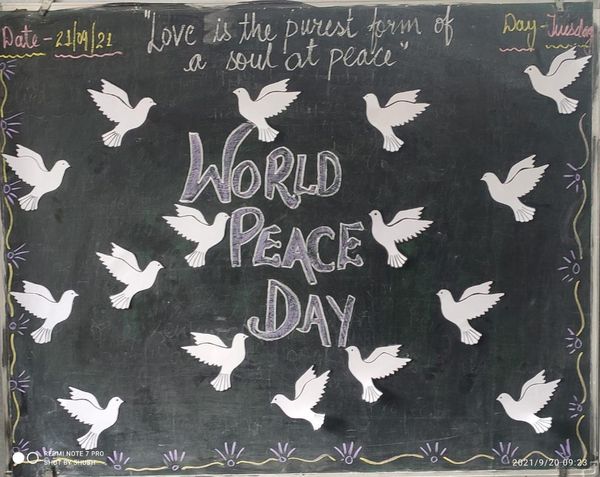 Date - 21/09/21
"Love is the purest form of
a soul at peace"
Day - Tuesday
WORLD
PEACE
DAY
REDMI NOTE 7 PRO
SHOT BY SHUBH
2021/9/20 09:23